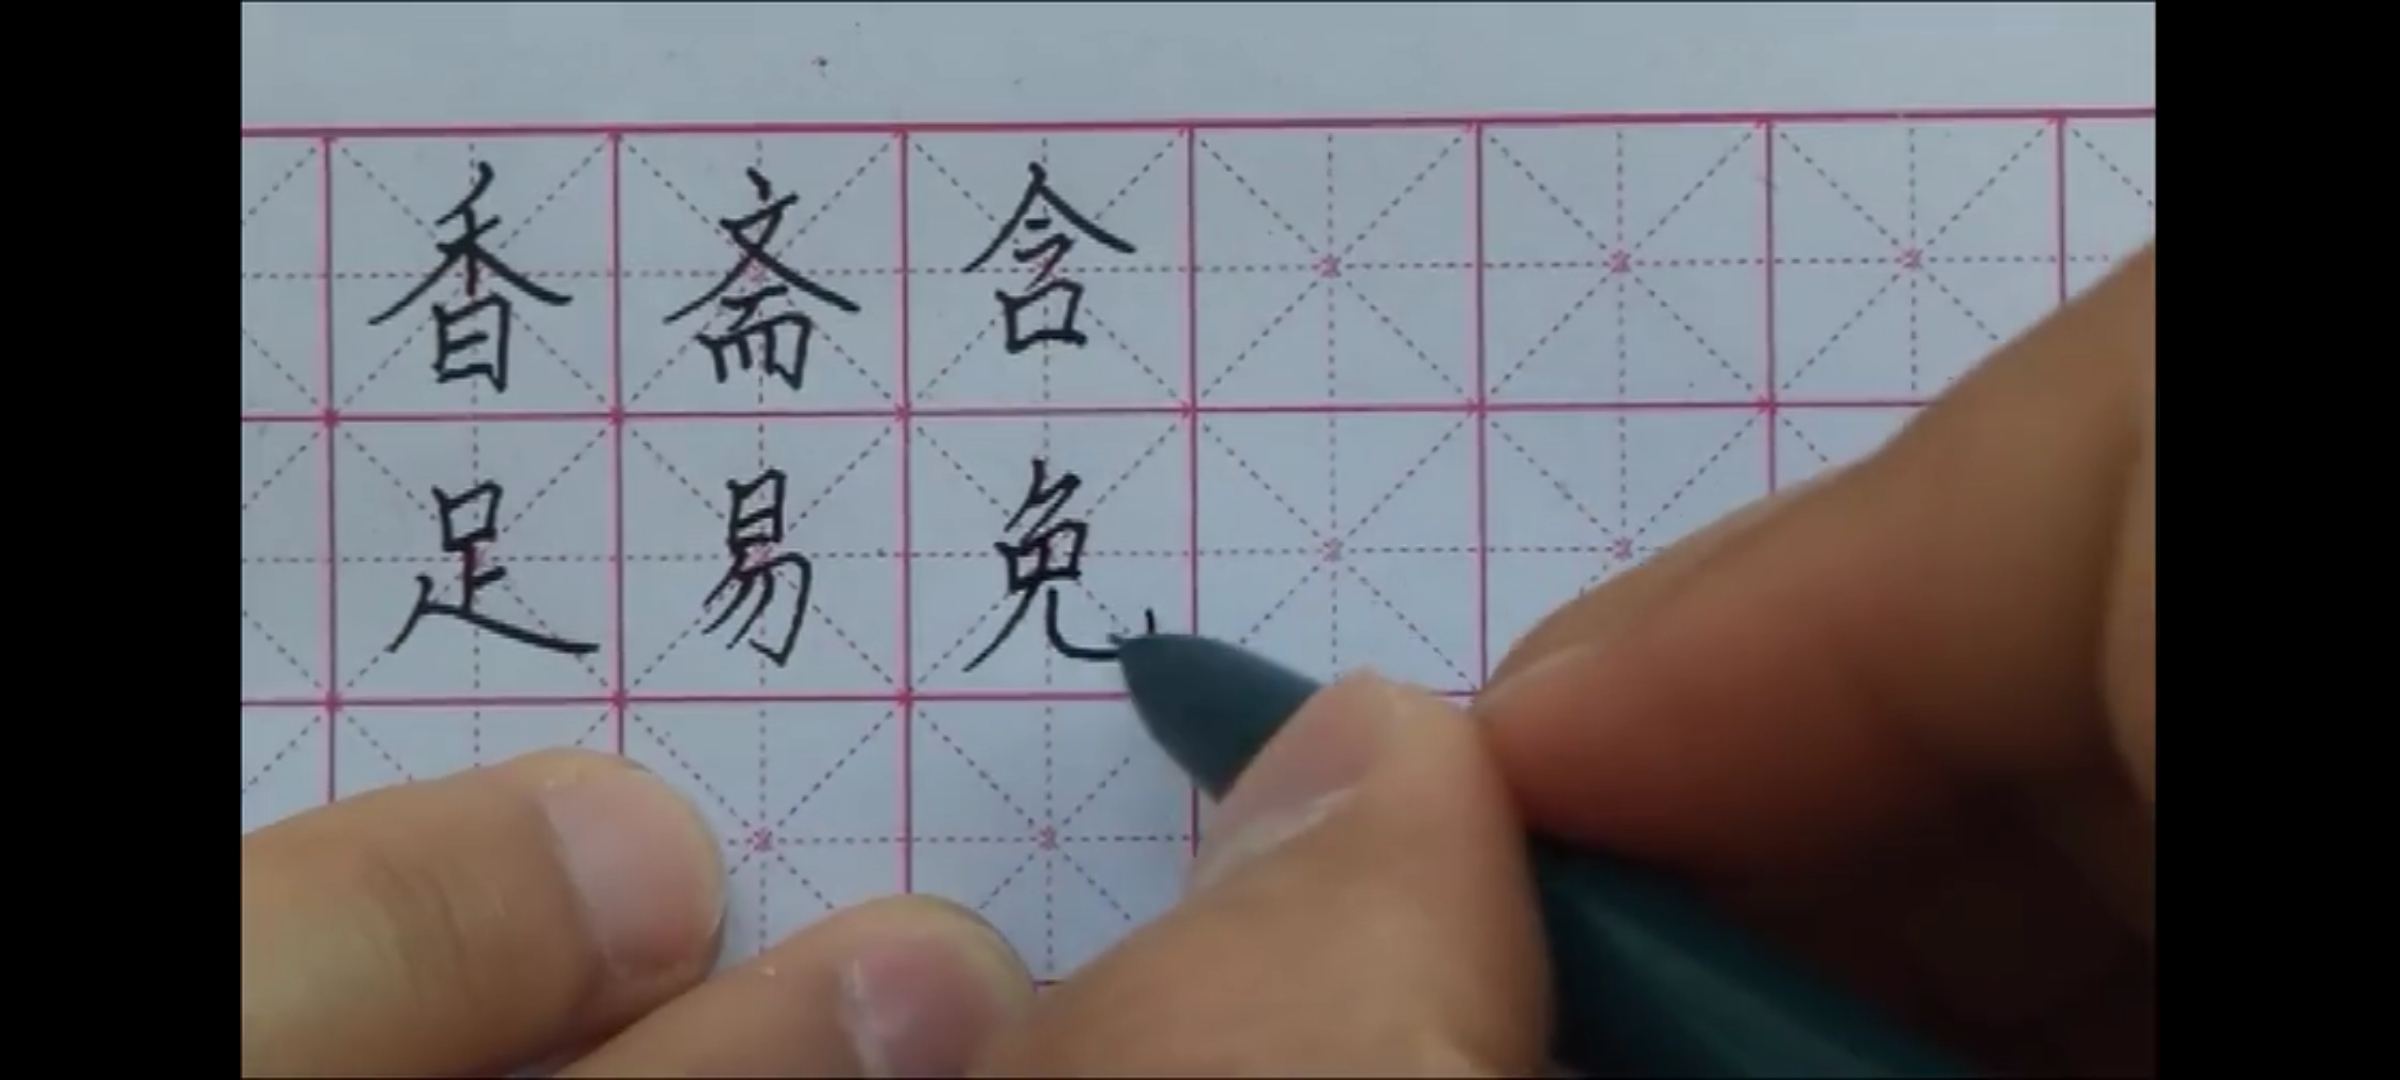 香斋含
足易免